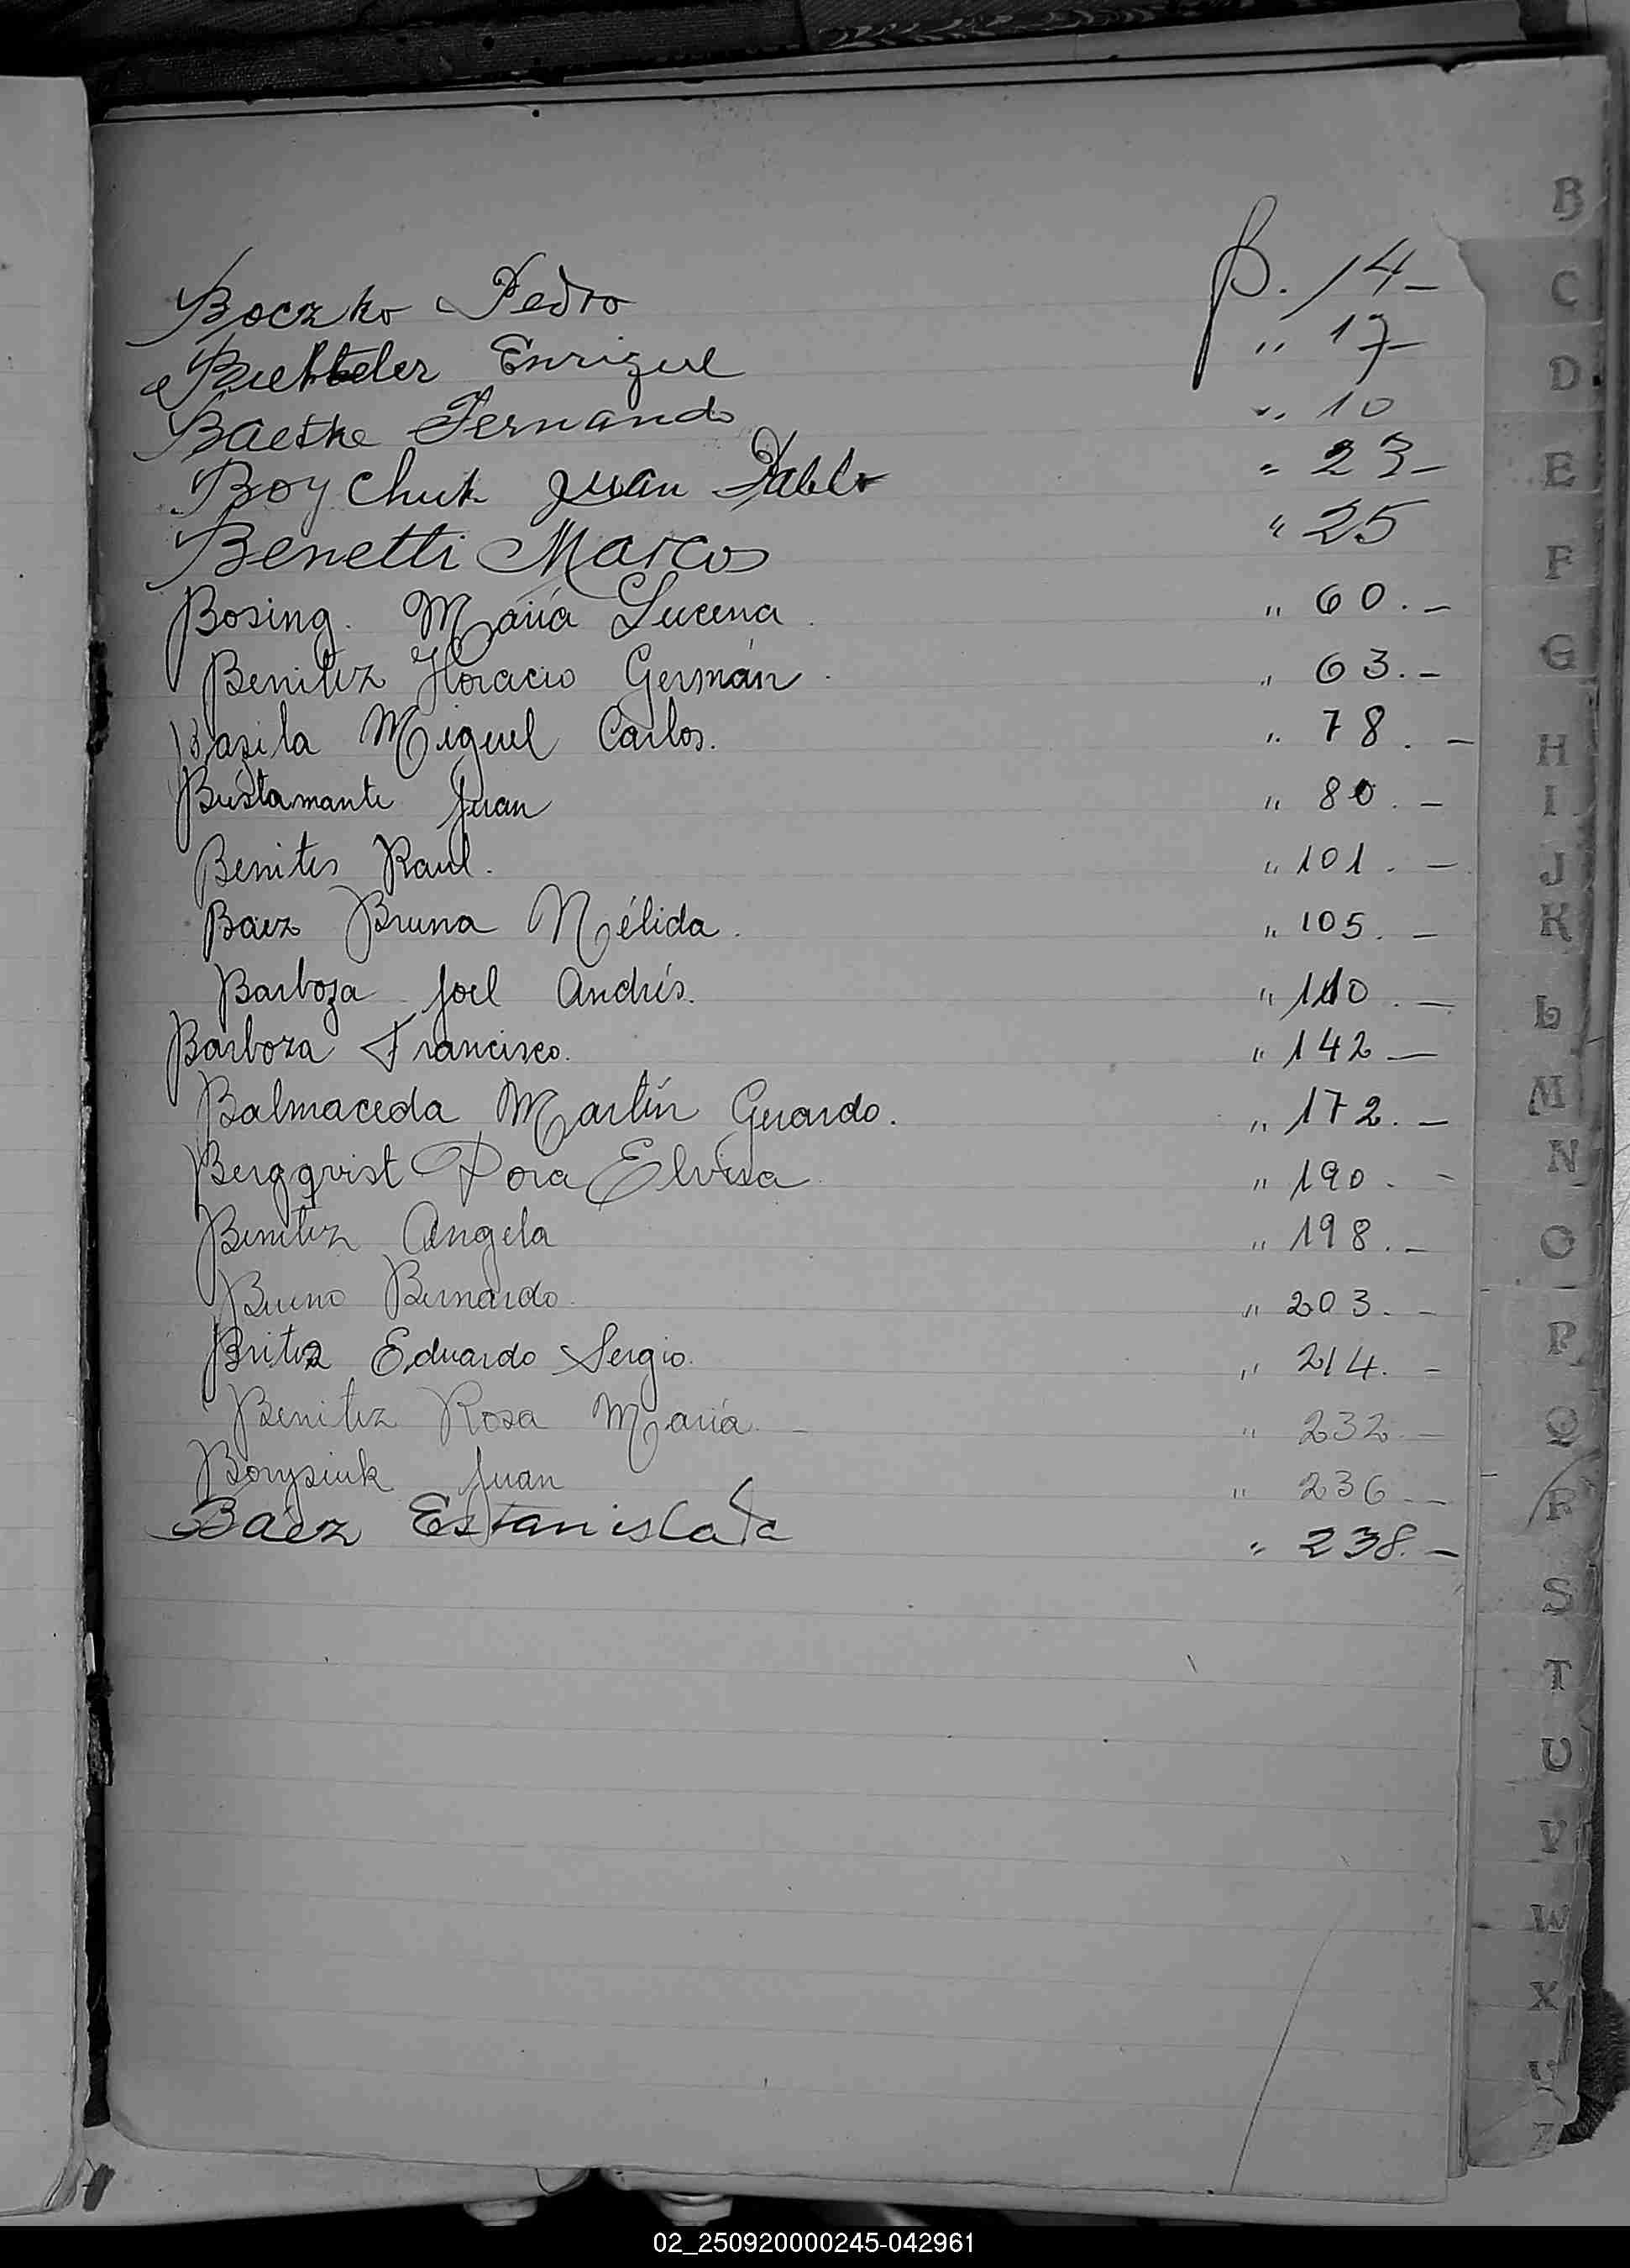 B
Boczko Pedro p. 14-
Enrique " 17-
Baetke Fernando " 10
Boychuk Juan Pablo " 23-
Benetti Marcos " 25
Bosing. María Lucena " 60.-
Benitez Horacio Germán. " 63.-
Bazila Miguel Carlos. " 78.-
Bustamante Juan " 80.-
Benites Raul. " 101.-
Baez Bruna Nélida. " 105.-
Barboza Joel Andrés. " 110.-
Barboza Francisco. " 142-
Balmaceda Martín Gerardo. " 172.-
Bergqvist Dora Elvisa " 190.-
Benitez Angela " 198.-
Bueno Bernardo. " 203.-
Britez Eduardo Sergio. " 214.-
Benitez Rosa María.- " 232-
Borysiuk Juan " 236-
Báez Estanislada " 238.-
C
D
E
F
G
H
I
J
K
L
M
N
O
P
Q
R
S
T
U
V
W
X
Z
02_250920000245-042961